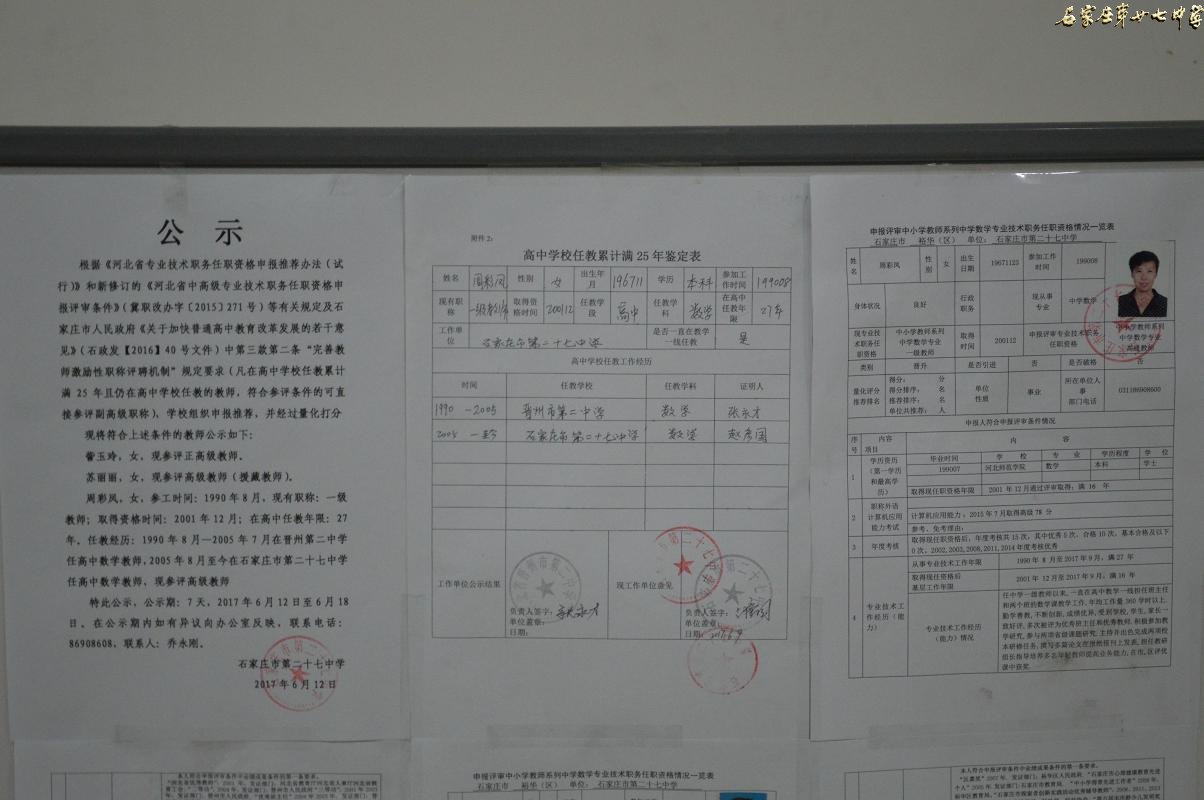 石家庄第廿七中学
公 示
根据《河北省专业技术职务任职资格申报推荐办法（试
行）》和新修订的《河北省中高级专业技术职务任职资格申
报评审条件》（冀职改办字〔2015〕271号）等有关规定及石
家庄市人民政府《关于加快普通高中教育改革发展的若干意
见》（石政发【2016】40号文件）中第三款第二条“完善教
师激励性职称评聘机制”规定要求（凡在高中学校任教累计
满 25 年且仍在高中学校任教的教师，符合参评条件的可直
接参评副高级职称），学校组织申报推荐，并经过量化打分
现将符合上述条件的教师公示如下：
訾玉玲，女，现参评正高级教师。
苏丽丽，女，现参评高级教师（援藏教师）。
周彩凤，女，参工时间：1990年8月，现有职称：一级
教师；取得资格时间：2001年12月；在高中任教年限：27
年。任教经历：1990年8月—2005年7月在晋州第二中学
任高中数学教师，2005年8月至今在石家庄市第二十七中学
任高中数学教师，现参评高级教师
特此公示，公示期：7天，2017年6月12日至6月18
日。在公示期内如有异议向办公室反映。联系电话：
86908608，联系人：乔永刚。
石家庄市第二十七中学
2017年6月12日
附件2：
高中学校任教累计满 25 年鉴定表
姓名 周彩凤 性别 女 出生年月 196711 学历 本科 参加工作时间 199008
现有职称 一级教师 取得资格时间 200112 任教学段 高中 任教学科 数学 在高中任教年限 27年
工作单位 石家庄市第二十七中学 是否一直在教学一线任教 是
高中学校任教工作经历
时间 任教学校 任教学科 证明人
1990—2005 晋州市第二中学 数学 张永才
2005—至今 石家庄市第二十七中学 数学 赵彦国
工作单位公示结果 负责人签字： 单位盖章： 日期：
现工作单位意见 负责人签字： 单位盖章： 日期： 2017.6.9
申报评审中小学教师系列中学数学专业技术职务任职资格情况一览表
石家庄市 裕华（区） 单位： 石家庄市第二十七中学
姓名 周彩凤 性别 女 出生日期 19671123 参加工作时间 199008
身体状况 良好 行政职务 现从事专业 中学数学
现专业技术职务任职资格 中小学教师系列中学数学专业一级教师 取得时间 200112 申报评审专业技术职务任职资格 中小学教师系列中学数学专业高级教师
类别 晋升 是否引进 否 是否破格 否
量化评分推荐排名 得分： 分 得分排序： 名 推荐排序： 名 单位共推荐： 人 单位性质 事业 所在单位人事部门电话 031186908600
申报人符合申报评审条件情况
序号 内容项目 内 容
1 学历资历（第一学历和最高学历） 毕业时间 学 校 专 业 学历程度 学 位
199007 河北师范学院 数学 本科 学士
取得现任职资格年限 2001年12月通过评审取得，满 16 年
2 职称外语计算机应用能力考试 计算机应用能力：2015年7月取得高级78分
参考、免考理由：
3 年度考核 取得现任职资格后，年度考核共15次，其中优秀5次，合格10次，基本合格及以下
0次。2002,2003,2008,2011,2014年度考核优秀
4 专业技术工作经历（能力） 从事专业技术工作年限 1990年 8月至2017年9月，满27年
取得现任资格后基层工作年限 2001年12月至2017年9月，满16年
专业技术工作经历（能力）情况 任中学一级教师以来，一直在高中教学一线担任班主任
和两个班的数学课教学工作，年均工作量360学时以上，
勤学善教，不断创新，成绩优异，受到学校，学生，家长一
致好评，多次被评为优秀班主任和优秀教师。积极参加教
学研究，参与两项省级课题研究。主持并出色完成两项校
本研修任务，撰写多篇论文在报纸报刊上发表，担任教研
组长指导培养多名年轻教师提高业务能力，在市、区评优
课中获奖。
本人符合申报评审条件中业绩成果条件的第一条要求。
申报评审中小学教师系列中学数学专业技术职务任职资格情况一览表
石家庄市 裕华（区） 单位： 石家庄市第二十七中学
本人符合申报评审条件中业绩成果条件的第一条要求。